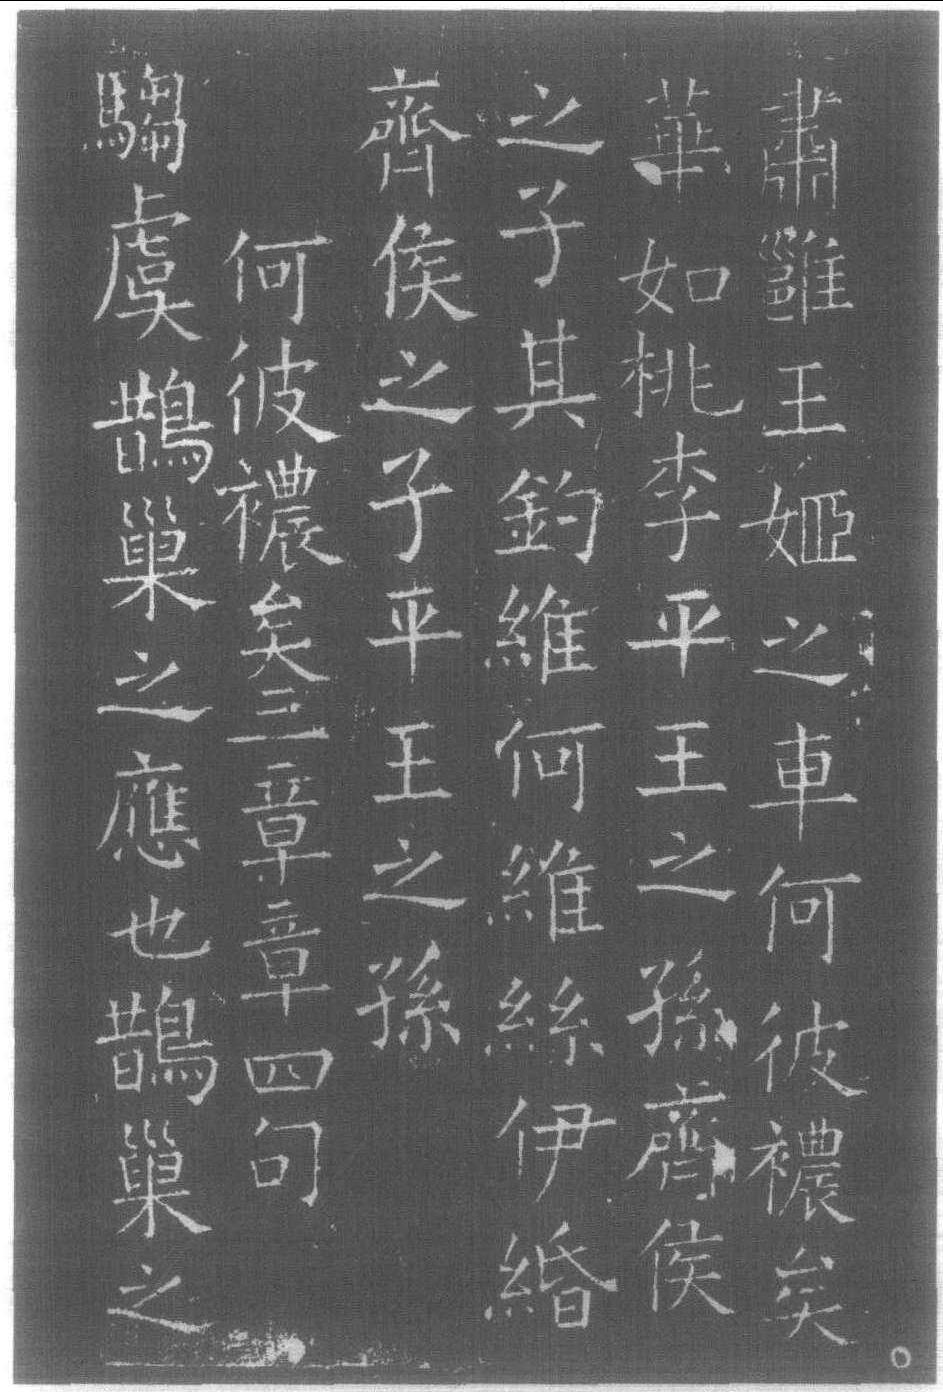 肅雝王姬之車何彼襛矣
華如桃李平王之孫齊侯
之子其釣維何維絲伊緡
齊侯之子平王之孫
何彼襛矣三章章四句
騶虞鵲巢之應也鵲巢之